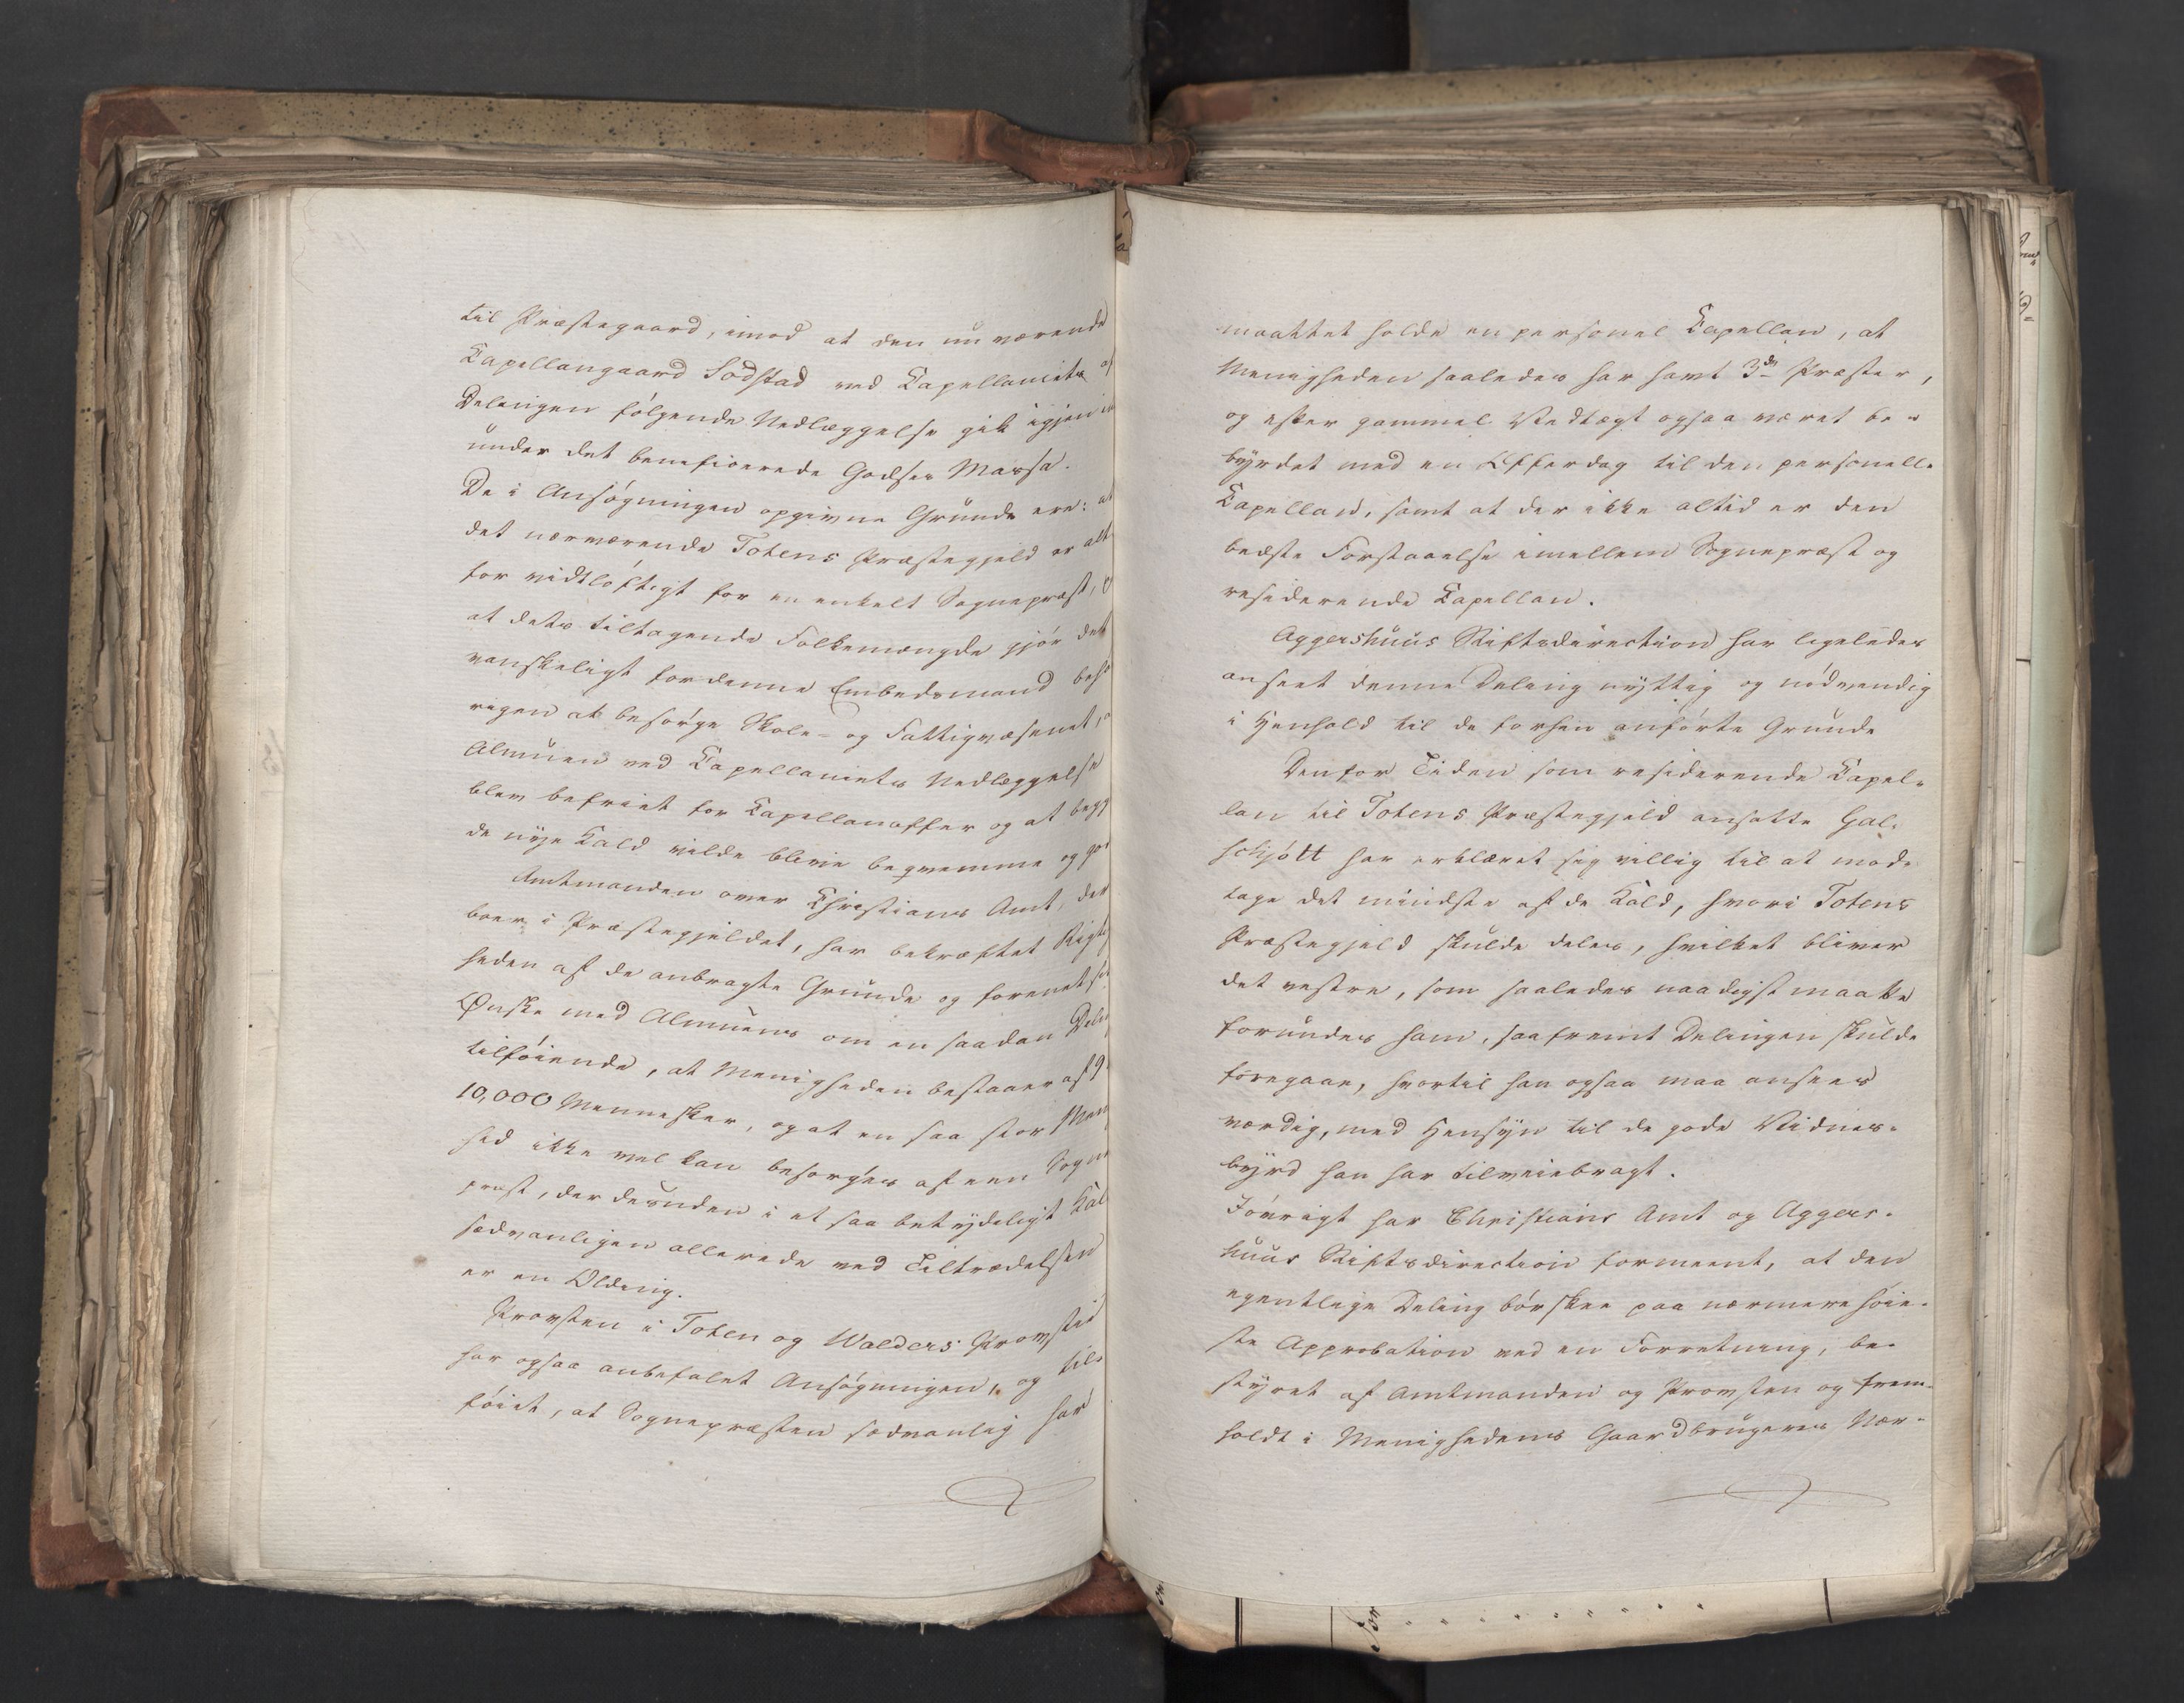 til Præstegaard, imod at den nu værende
Capellangaard Sodstad ved Capellaniets af
Delingen følgende Nedlæggelse gik igjen in
under det beneficerede Godses Massa.
De i Ansøgningen opgivne Grunde ere: at
det nærværende Totens Præstegjeld er alt
for vidtløftigt for en enkelt Sognepræst, o
at dets tiltagende Folkemængde gjør det
vanskeligt for denne Embedsmand behø
rigen at besørge Skole- og Fattigvæsenet, a
Almuen ved Capellaniets Nedlæggelse
blev befriet for Capellanoffer og at begg
de nye Kald vilde blive beqvemme og go
Amtmanden over Christians Amt, der
boer i Præstegjeldet, har bekræftet Rigtig
heden af de anbragte Grunde og forenet si
Ønske med Almuens om en saadan Deli
tilføiende, at Menigheden bestaaer af 9
10,000 Mennesker, og at en saa stor Men
hed ikke vel kan besørges af een Sogne
præst, der desuden i et saa betydeligt Kal
sædvanligen allerede ved Tiltrædelsen
er en Olding.
Provsten i Toten og Walders Provstie
har ogsaa anbefalet Ansøgningen, og til-
føiet, at Sognepræsten sædvanlig har
maattet holde en personel Capellan, at
Menigheden saaledes har havt 3de Præster,
og efter gammel Vedtægt ogsaa været be-
byrdet med en Offerdag til den personelle
Capellan, samt at der ikke altid er den
bedste Forstaaelse imellem Sognepræst og
residerende Capellan.
Aggershuus Stiftsdirection har ligeledes
anseet denne Deling nyttig og nødvendig
i Henhold til de forhen anførte Grunde
Den for Tiden som residerende Capel-
lan til Totens Præstegjeld ansatte Gal-
schjøtt har erklæret sig villig til at mod-
tage det mindste af de Kald, hvori Totens
Præstegjeld skulde deles, hvilket bliver
det vestre, som saaledes naadigst maatte
forundes ham, saafremt Delingen skulde
foregaae, hvortil han ogsaa maa ansees
værdig, med Hensyn til de gode Vidnes-
byrd han har tilveiebragt.
Iøvrigt har Christians Amt og Aggers-
huus Stiftsdirection formeent, at den
egentlige Deling bør skee paa nærmere høie-
ste Approbation ved en Forretning, be-
styret af Amtmanden og Provsten og frem-
holdt i Menighedens Gaardbrugeres Nær-